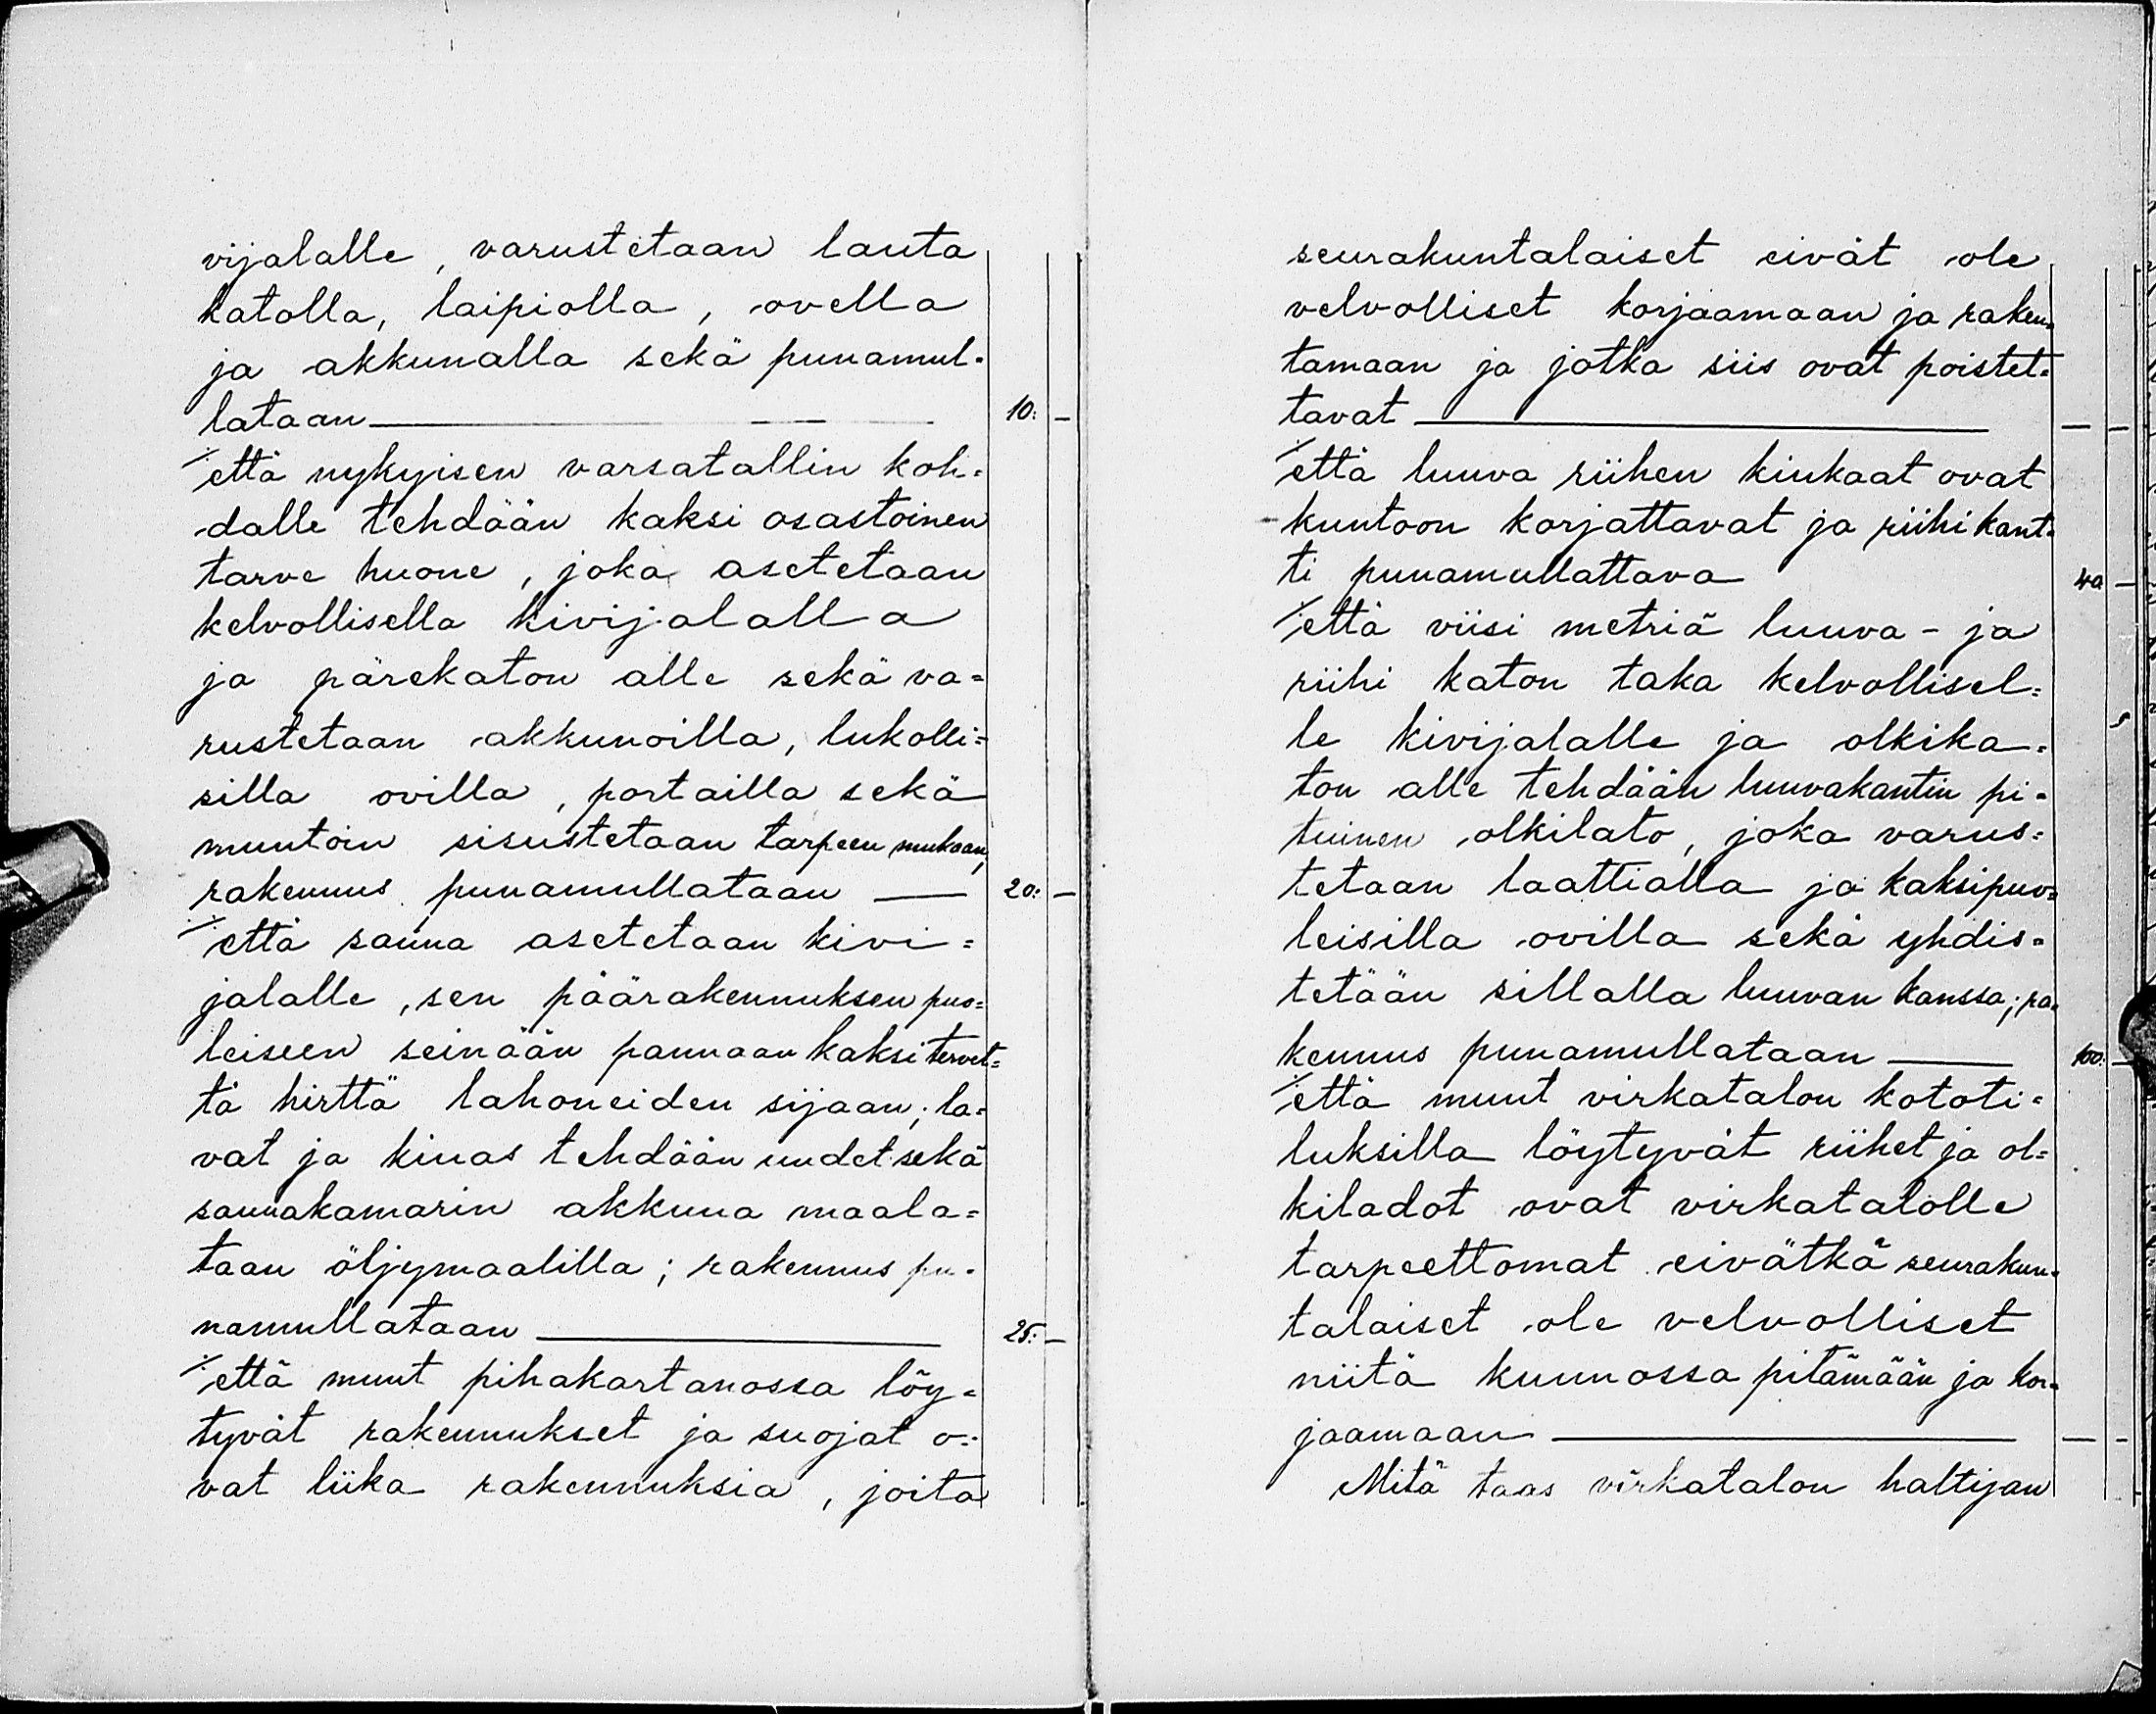 vijalalle, varustetaan lauta
katolla, laipiolla, ovella
ja akkunalla sekä punamul-
lataan — 10: —
⁒ että nykyisen varsatallin koh=
dalle tehdään kaksi osastoinen
tarve huone, joka asetetaan
kelvollisella kivijalalla
ja pärekaton alle sekä va=
rustetaan akkunoilla, lukolli=
silla ovilla, portailla sekä
muntoin sisustetaan tarpeen mukaan,
rakennus punamullataan — 20: —
⁒ että sauna asetetaan kivi=
jalalle, sen päärakennuksen puo=
leiseen seinään pannaan kaksi tervet=
tä hirttä lahoneiden sijaan; la=
vat ja kiuas tehdään uudet sekä
saunakamarin akkuna maala=
taan öljymaalilla; rakennus pu-
namullataan — 25: —
⁒ että muut pihakartanossa löy=
tyvät rakennukset ja suojat o=
vat liika rakennuksia, joita
seurakuntalaiset eivät ole
velvolliset korjaamaan ja raken=
tamaan ja jotka siis ovat poistet=
tavat — — —
⁒ että luuva riihen kiukaat ovat
kuntoon korjattavat ja riihi kant=
ti punamullattava 40 —
⁒ että viisi metriä luuva- ja
riihi katon taka kelvollisel=
le kivijalalle ja olkika=
ton alle tehdään luuvakantin pi=
tuinen olkilato, joka varus=
tetaan laattialla ja kaksipuo=
leisilla ovilla sekä yhdis=
tetään sillalla luuvan kanssa; ra=
kennus punamullataan — 100: —
⁒ että muut virkatalon kototi=
luksilla löytyvät riihet ja ol=
kiladot ovat virkatalolle
tarpeettomat eivätkä seurakun=
talaiset ole velvolliset
niitä kunnossa pitämään ja kor=
jaamaan — — —
Mitä taas virkatalon haltijan